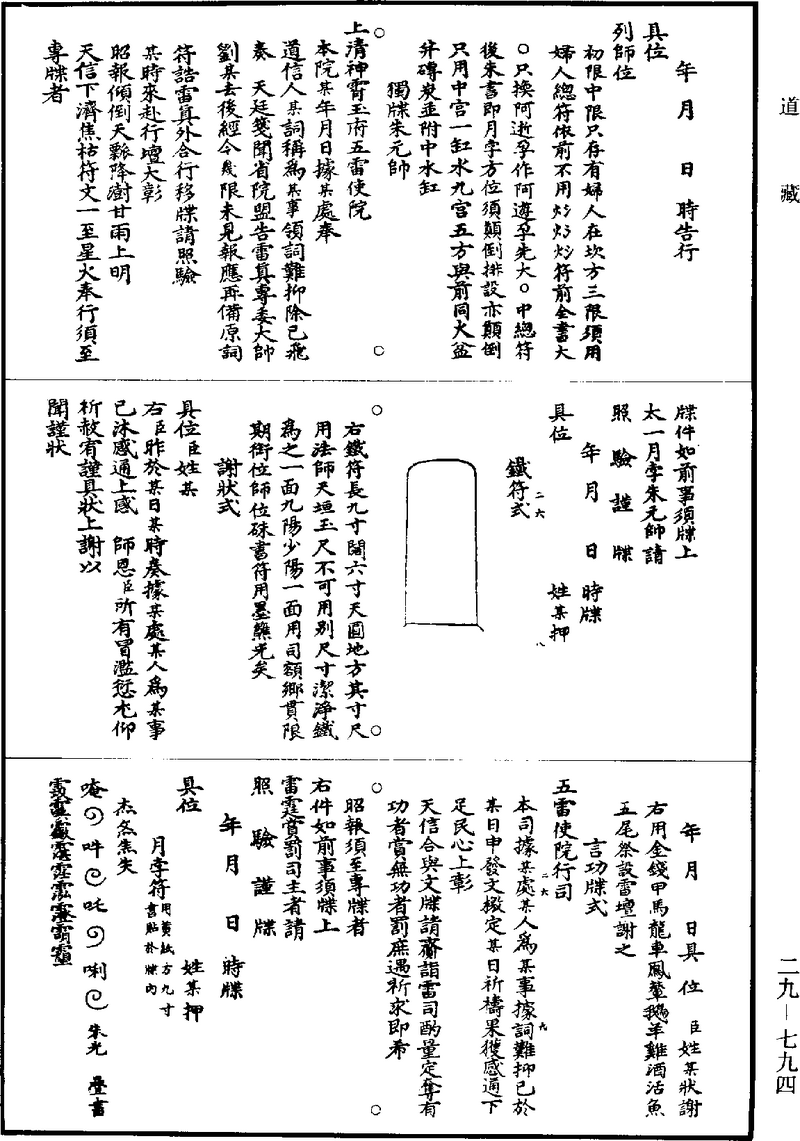 道藏
年月　日時告行
具位
列師位
初限中限只存有婦人在坎方三限須用
婦人總符依前不用符前全書大
○只換阿逝孚作阿遵孚先大○中總符
後朱書即月孛方位須顛倒排設亦顛倒
只用中宫一缸水九宫五方與前同大盆
并磚炭並附中水缸
獨牒朱元帥
上清神霄玉府五雷使院
本院某年月日據某處奉
道信人某詞稱為某事領詞難抑除已飛
奏　天廷箋聞省院盟告雷真專委大帥
劉某去後經今幾限未見報應再備原詞
符誥雷真外合行移牒請照驗
某時來赴行壇大彰
昭報傾倒天瓢降澍甘雨上明
天信下濟焦枯符文一至星火奉行須至
專牒者
牒件如前事須牒上
太一月孛朱元帥請
照驗謹牒
年月　日　時牒
具位　姓某押
鐵符式
二六
八
右鐵符長九寸闊六寸天圓地方其寸尺
用法師天垣玉尺不可用别尺寸潔淨鐵
為之一面九陽少陽一面用司額鄉貫限
期銜位師位硃書符用墨蘸光矣
謝狀式
具位臣姓某
右臣昨於某日某時奏據某處某人為某事
已沐感通上感　師恩臣所有冒濫愆尤仰
祈赦宥謹具狀上謝以
聞謹狀
年月　日具位　臣姓某狀謝
右用金錢甲馬龍車鳳輦鵝羊雞酒活魚
五尾祭設雷壇謝之
言功牒式
五雷使院行司
二六
九
本司據某處某人為某事據詞難抑已於
某日申發文檄定某日祈禱果獲感通下
足民心上彰
天信合與文牒請齎詣雷司酌量定奪有
功者賞無功者罰庶遇祈求即希
昭報須至專牒者
右件如前事須牒上
雷霆賞罰司主者請
照驗謹牒
年月　日　時牒
具位　姓某押
月孛符用黄紙方九寸書貼於牒内
杰炁焦失
唵吽吒唎朱光　疊書
二九—七九四